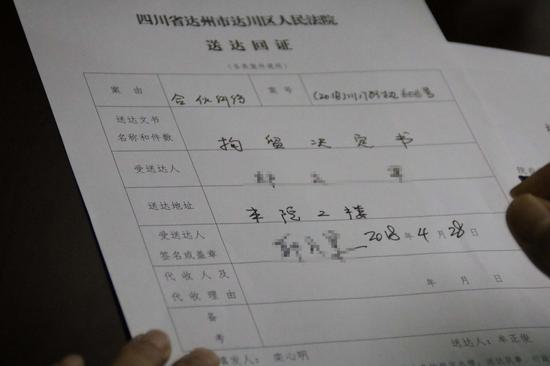 四川省达州市达川区人民法院
送达回证
案由 合伙纠纷 案号
送达文书
名称和件数 拘留决定书
受送达人
送达地址 本院2楼
受送达人
签名或盖章 2018年4月28日
代收人及
代收理由 年 月 日
备
考
填发人：栾心明 送达人：牟正俊